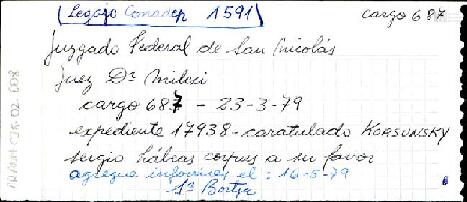 (Legajo Conadep 1591) cargo 687
Juzgado Federal de San Nicolás
Juez Dr. Milesi
cargo 687 - 23-3-79
expediente 17938 - caratulado KORSUNSKY
sergio hábeas corpus a su favor
agregue informes el : 16-5-79